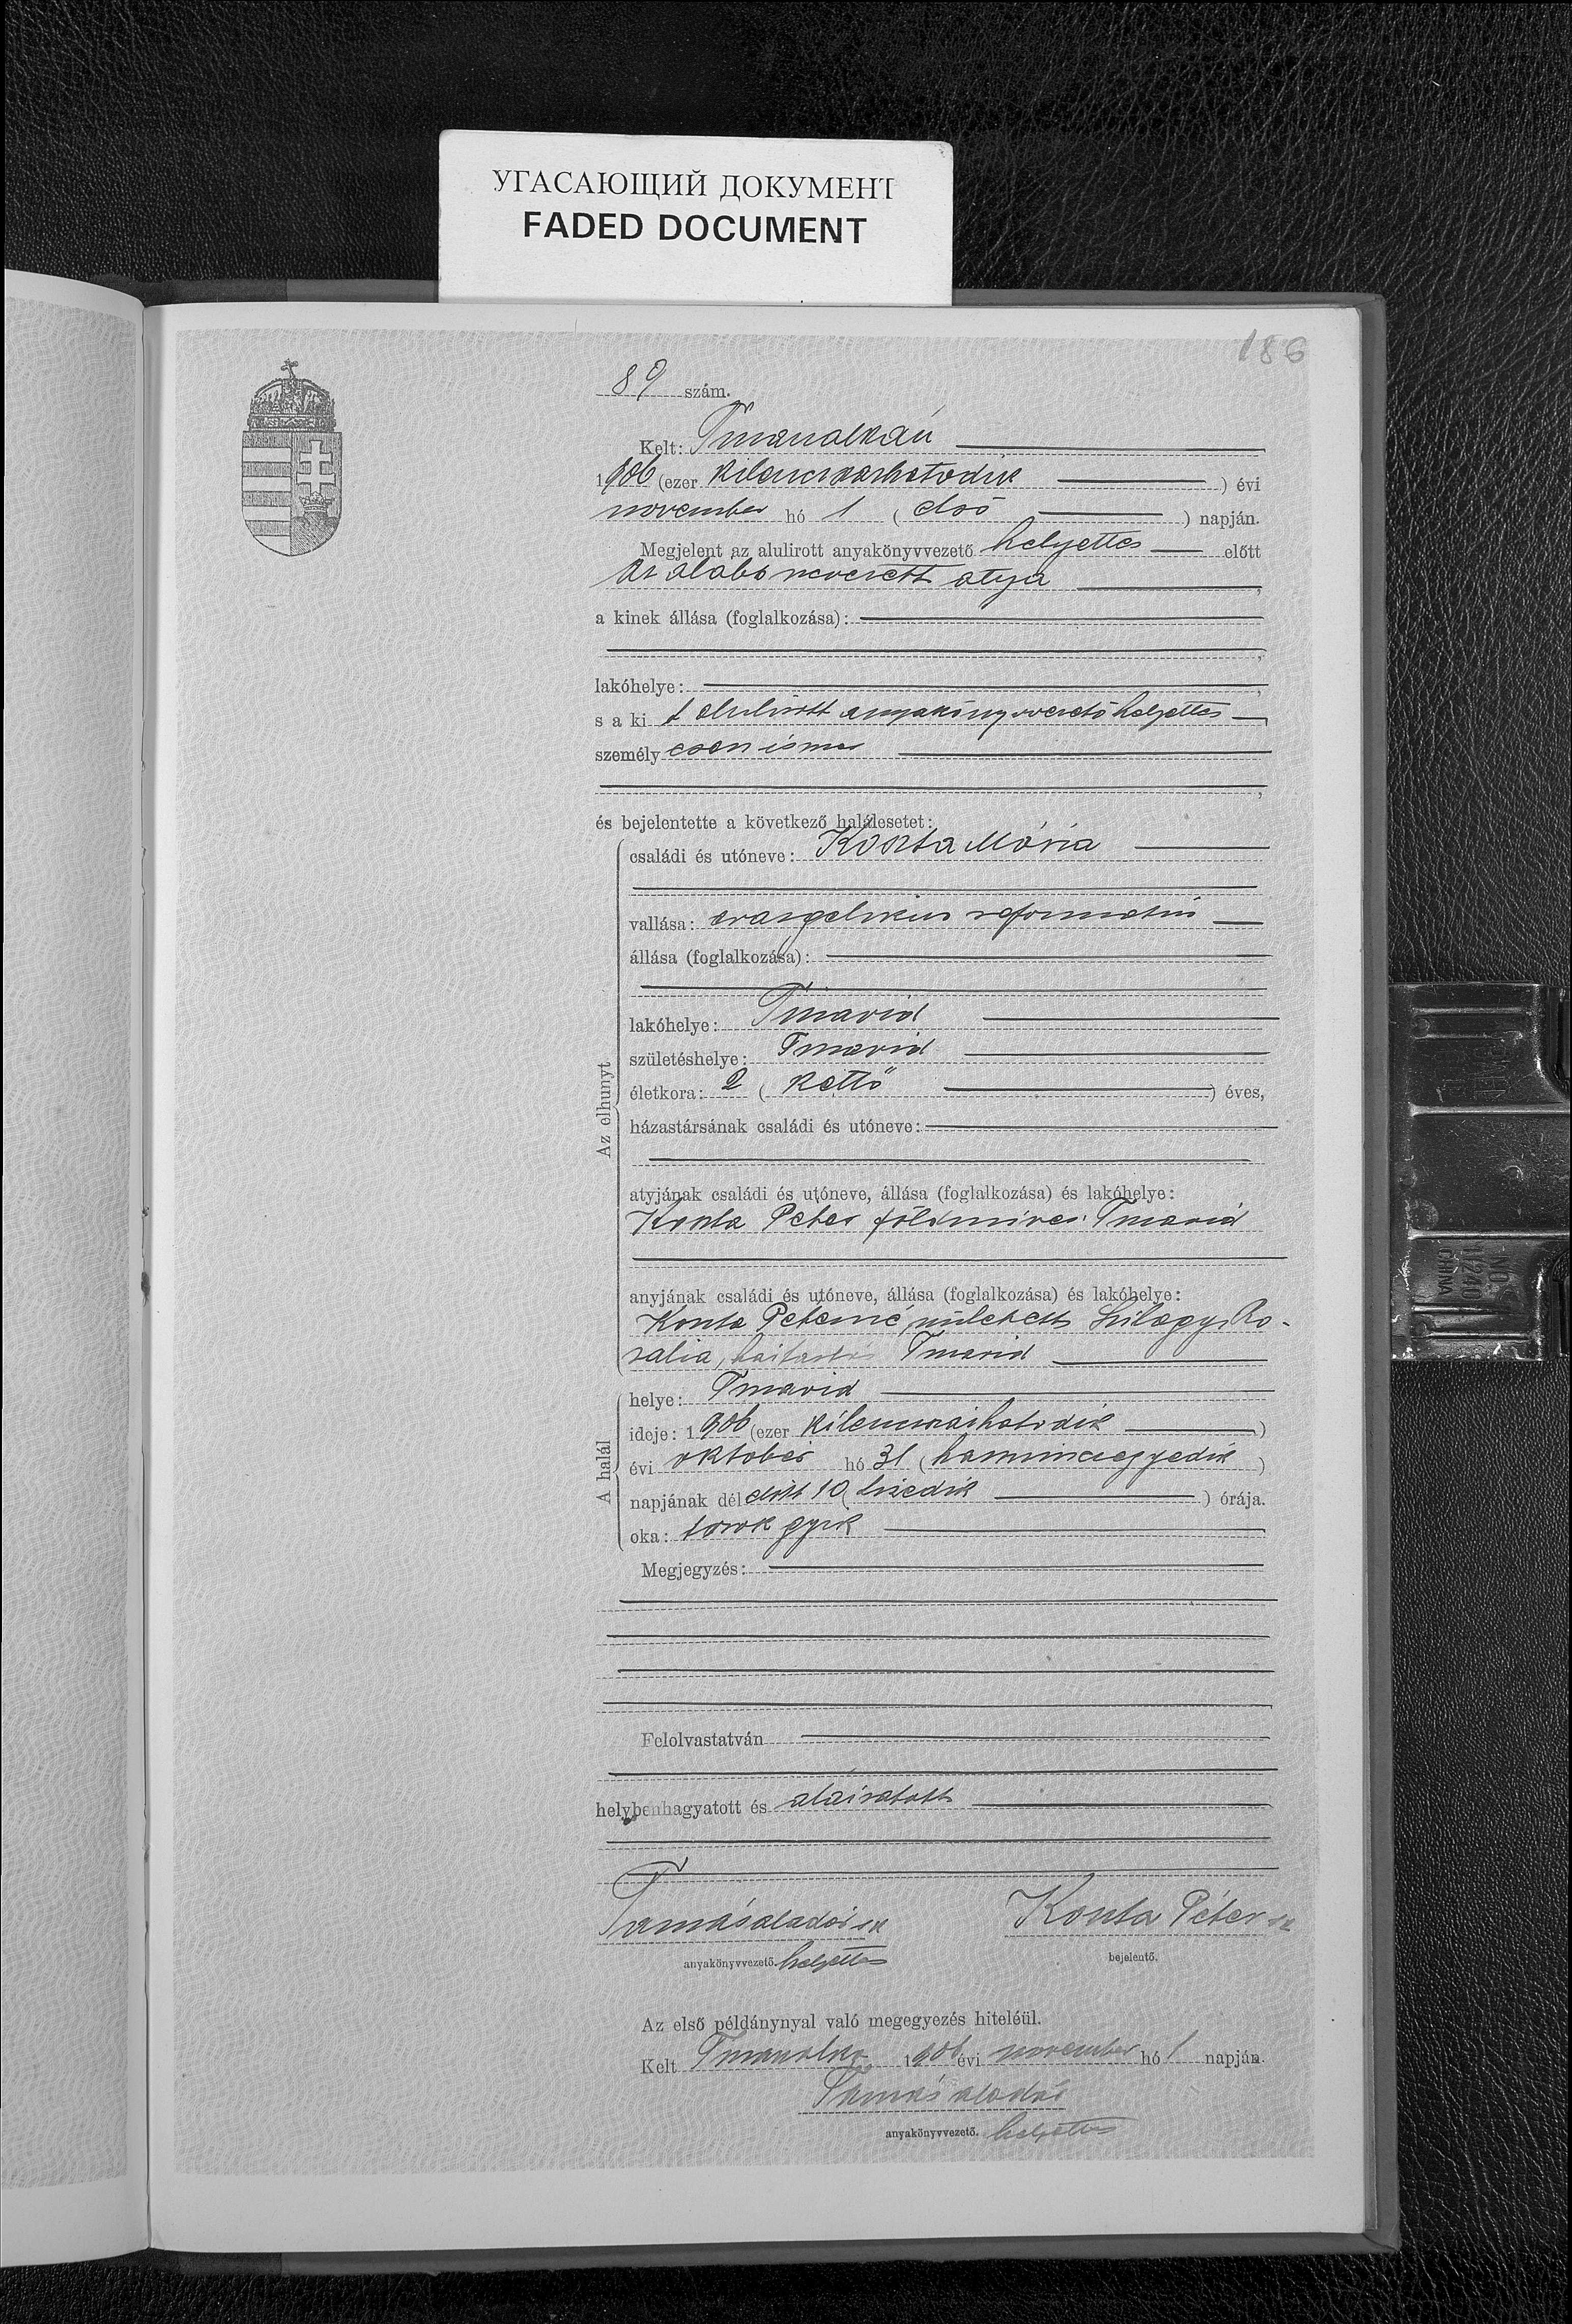 УГАСАЮЩИЙ ДОКУМЕНТ
FADED DOCUMENT
186
89 szám.
Kelt:
1906 (ezer kilencszázhatodik ) évi
november hó 1 ( első ) napján.
Megjelent az alulirott anyakönyvvezető helyettes előtt
az alább nevezett atya ,
a kinek állása (foglalkozása):
,
lakóhelye: ,
s a ki t alulirott anyakönyvvezető helyettes
személyesen ismer
,
és bejelentette a következő halálesetet:
Az elhunyt
családi és utóneve: Koszta Mária
vallása: evangelikus református
állása (foglalkozása):
lakóhelye: Tmavid
születéshelye: Tmavid
életkora: 2 ( kettő ) éves,
házastársának családi és utóneve:
atyjának családi és utóneve, állása (foglalkozása) és lakóhelye:
Koszta Péter földmives Tmavid
anyjának családi és utóneve, állása (foglalkozása) és lakóhelye:
Koszta Péterné született Szilágyi Ro-
zalia, Tmavid
A halál
helye: Tmavid
ideje: 1906 (ezer kilencszázhatodik )
évi október hó 31 ( harmincegyedik )
napjának dél előtt 10 ( tizedik ) órája.
oka: torokgyik
Megjegyzés:
Felolvastatván
helybenhagyatott és aláiratott
Tamás Aladár sk Koszta Péter sk
anyakönyvvezető. helyettes bejelentő.
Az első példánynyal való megegyezés hiteléül.
Kelt 1906 évi november hó 1 napján.
Tamás Aladár
anyakönyvvezető. helyettes